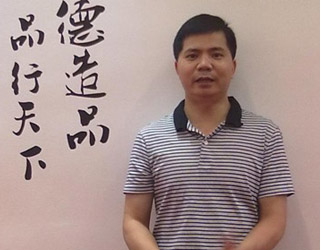 德造品
品行天下